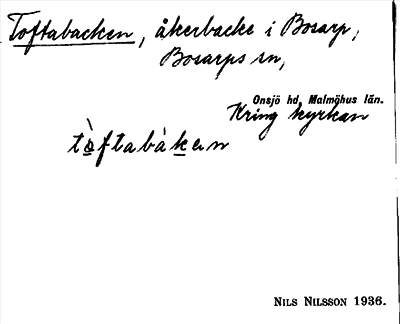 Toftabacken, åkerbacke i Bosarp,
Bosarps sn,
Onsjö hd, Malmöhus län.
Kring kyrkan
tòftabàken
NILS NILSSON 1936.